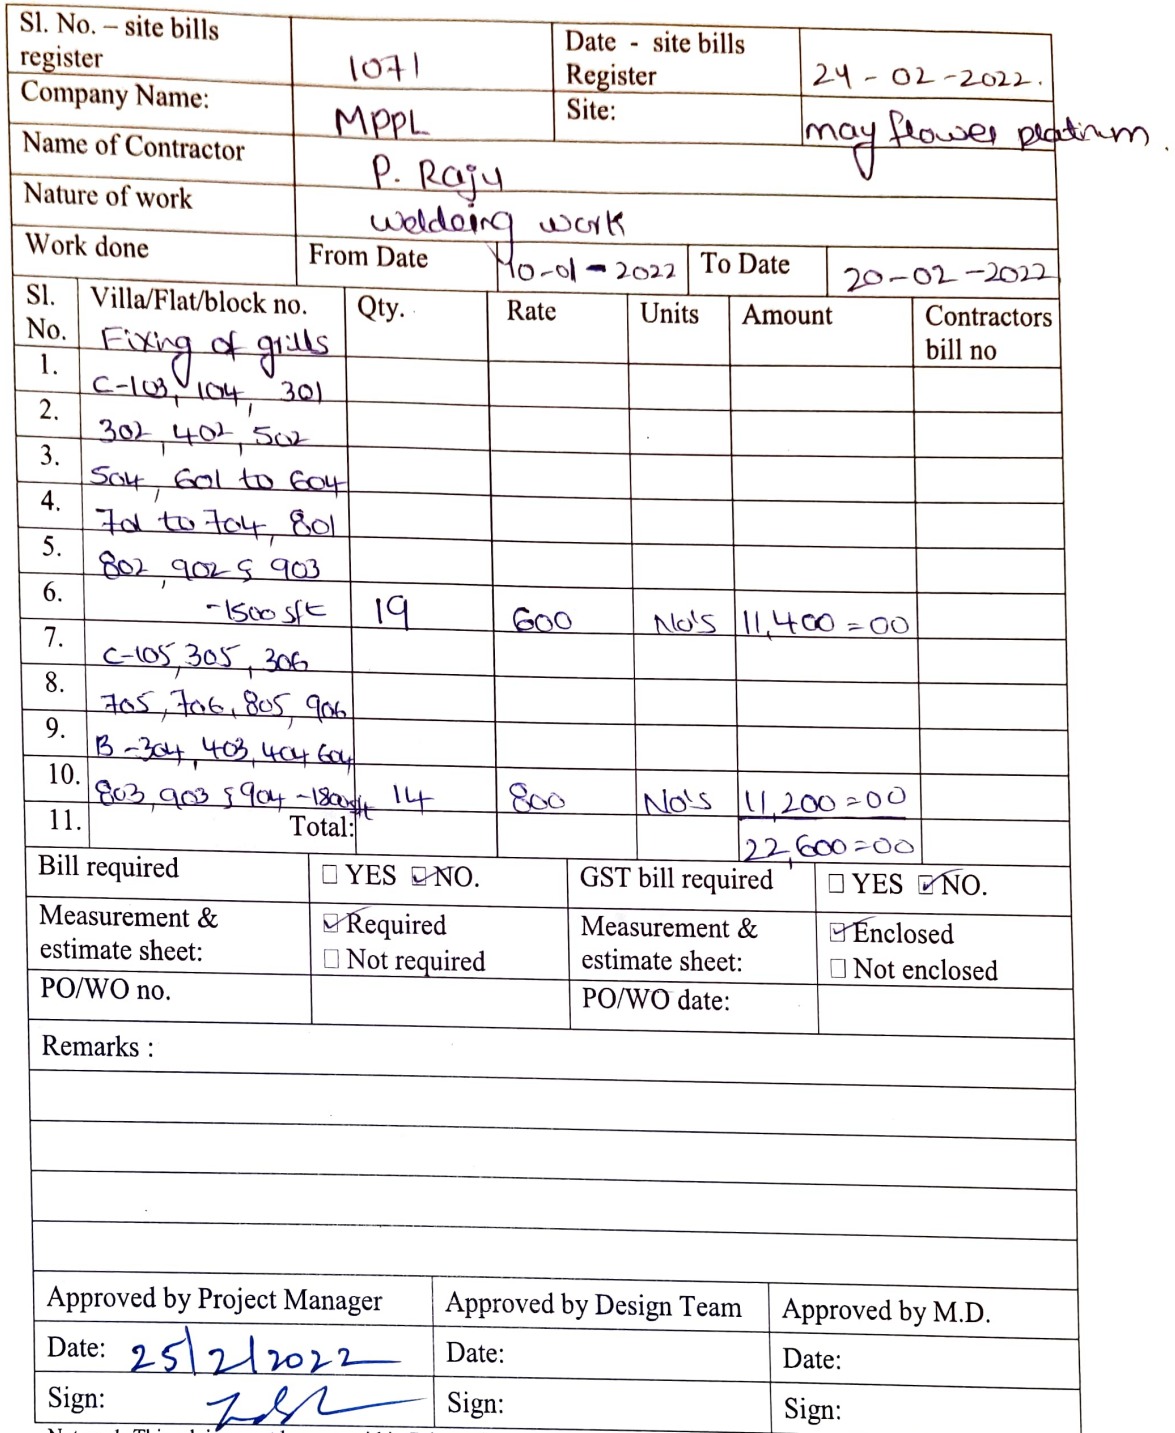 Sl. No. – site bills register 1071 Date - site bills Register 24-02-2022.
Company Name: MPPL Site: may flower platinum.
Name of Contractor P. Raju
Nature of work weldoing work
Work done From Date 10-01-2022 To Date 20-02-2022
Sl. No. Villa/Flat/block no. Qty. Rate Units Amount Contractors bill no
Fixing of grills
1. C-103, 104, 301
2. 302, 402, 502
3. 504, 601 to 604
4. 701 to 704, 801
5. 802, 902 & 903
6. -1500 sft 19 600 No's 11,400=00
7. C-105, 305, 306
8. 705, 706, 805, 906
9. B-304, 403, 404 604
10. 803, 903 & 904 -1800sft 14 800 No's 11,200=00
11. Total: 22,600=00
Bill required ☐ YES ☑ NO. GST bill required ☐ YES ☑ NO.
Measurement & estimate sheet: ☑ Required ☐ Not required Measurement & estimate sheet: ☑ Enclosed ☐ Not enclosed
PO/WO no. PO/WO date:
Remarks :
Approved by Project Manager Approved by Design Team Approved by M.D.
Date: 25/2/2022 Date: Date:
Sign: Sign: Sign: